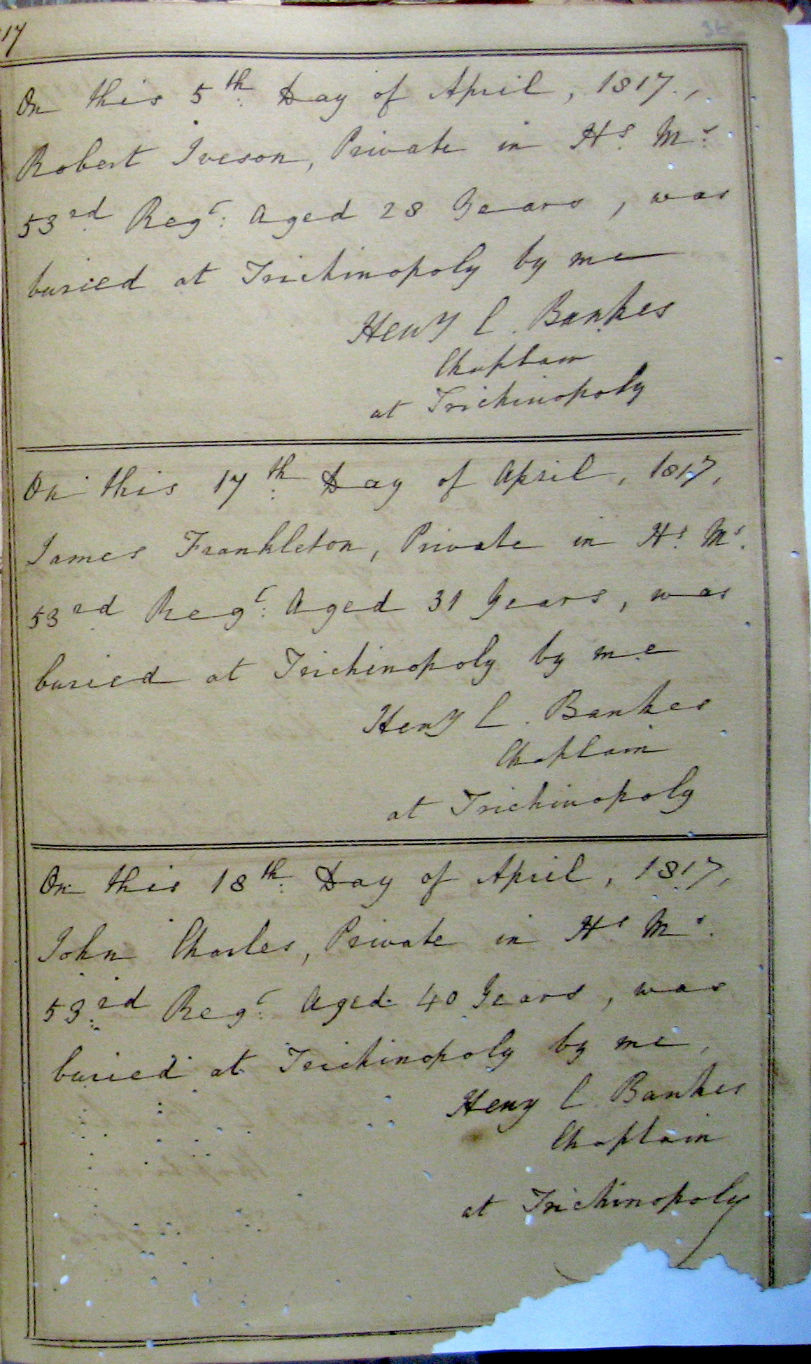 17
On this 5th Day of April, 1817,
Robert Iveson, Private in Hs. Ms.
53rd Regt: Aged 28 Years, was
buried at Trichinopoly by me
Heny C. Bankes
Chaplain
at Trichinopoly
On this 17th Day of April, 1817,
James Frankleton, Private in Hs. Ms.
53rd Regt: Aged 31 Years, was
buried at Trichinopoly by me
Heny C. Bankes
Chaplain
at Trichinopoly
On this 18th Day of April, 1817,
John Charles, Private in Hs Ms.
53rd Regt: Aged 40 Years, was
buried at Trichinopoly by me,
Heny C. Bankes
Chaplain
at Trichinopoly